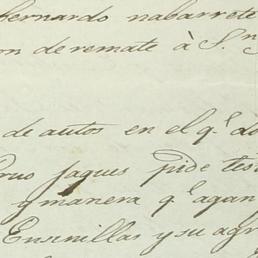 bernardo nabarrete
on de remate à S.n
de autos en el q.e do
Jaques pide tes
y manera q.e agan
Ensenillas y su agr